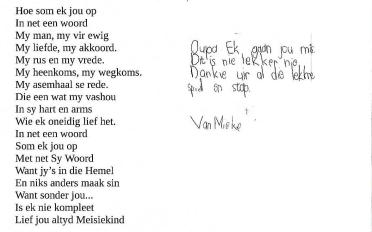 Hoe som ek jou op
In net een woord
My man, my vir ewig
My liefde, my akkoord.
My rus en my vrede.
My heenkoms, my wegkoms.
My asemhaal se rede.
Die een wat my vashou
In sy hart en arms
Wie ek oneidig lief het.
In net een woord
Som ek jou op
Met net Sy Woord
Want jy's in die Hemel
En niks anders maak sin
Want sonder jou...
Is ek nie kompleet
Lief jou altyd Meisiekind
Oupa Ek gaan jou mis
Dit is nie lekker nie.
Dankie vir al die lekke
en stap.
Van Mieke